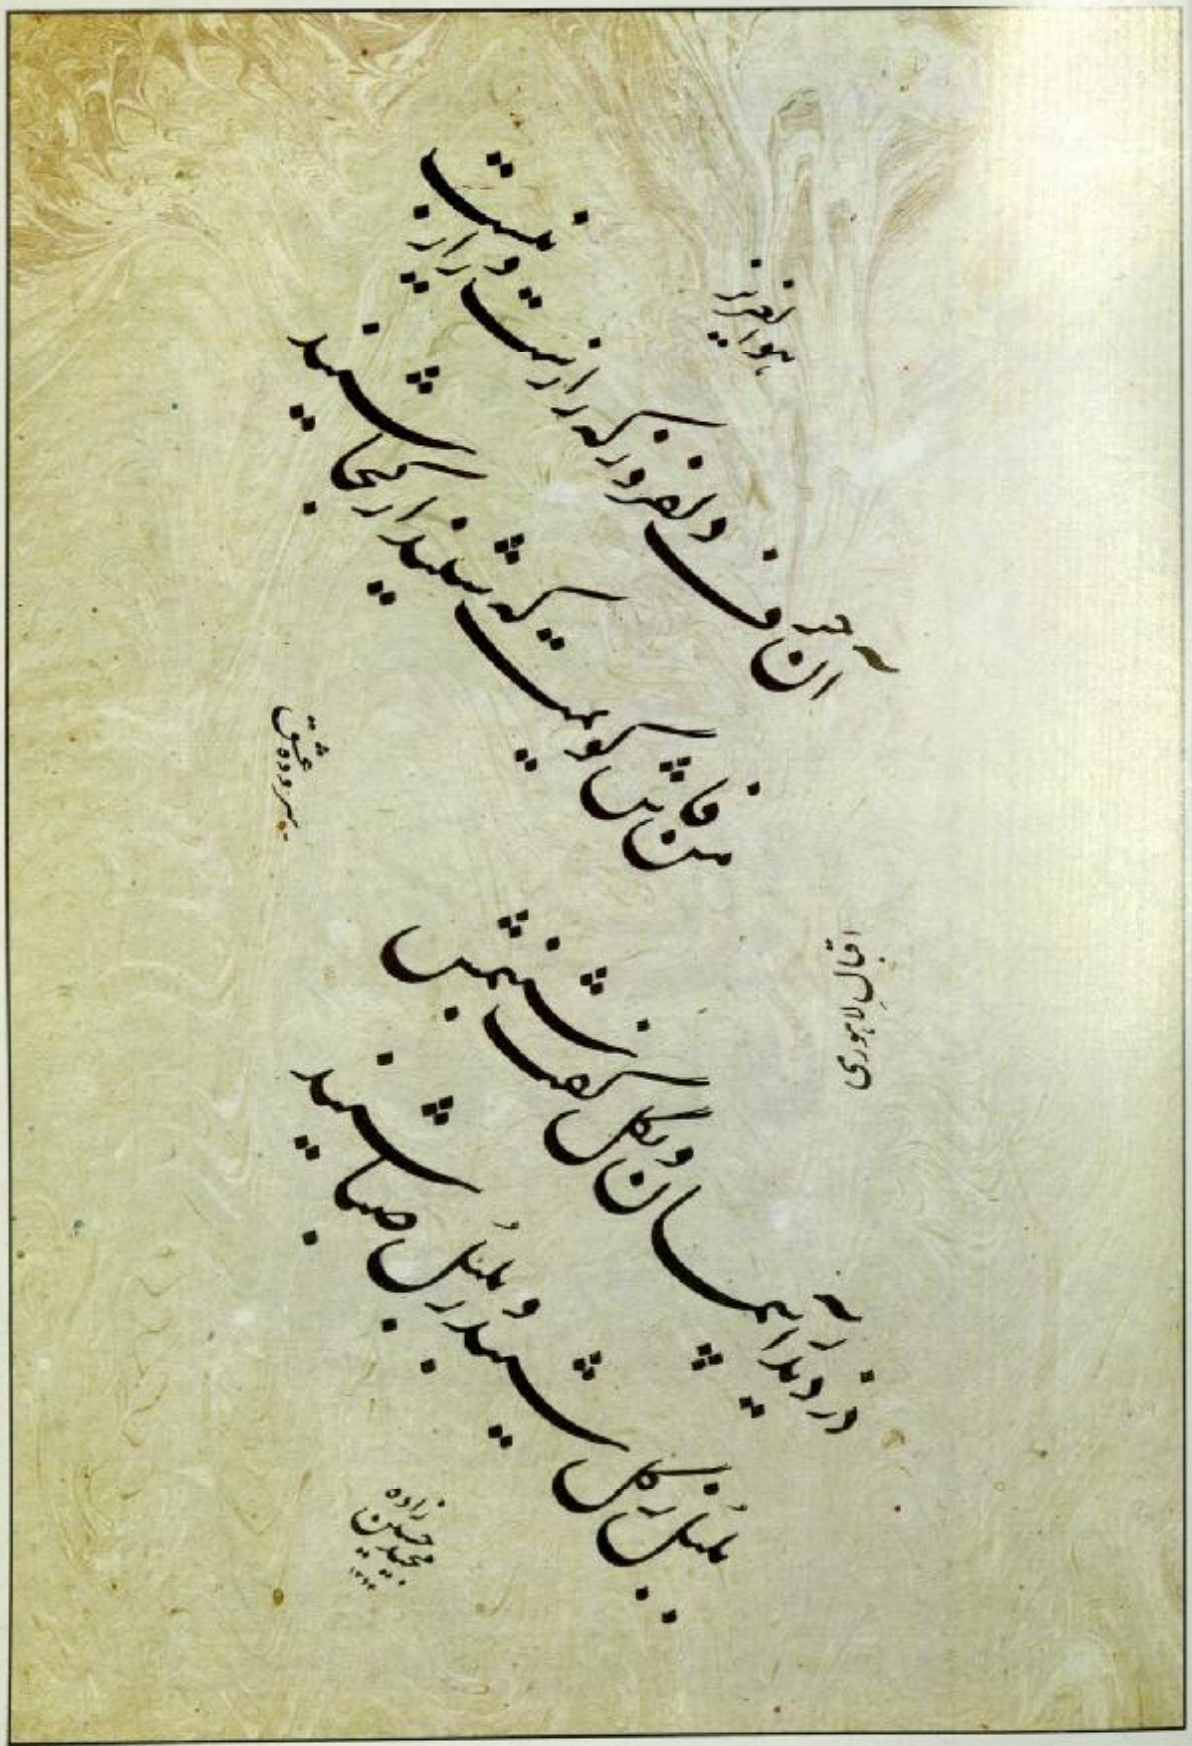 هوالعزیز
آن حرف دلفروز که راز است و راز نیست
من فاش گویمت که شنید از کجا شنید
سروده عشق
اقبال لاهوری
دزدید ز آسمان و بگل گفت شبنمش
بلبل ز گل شنید و ز بلبل صبا شنید
حسین زاده